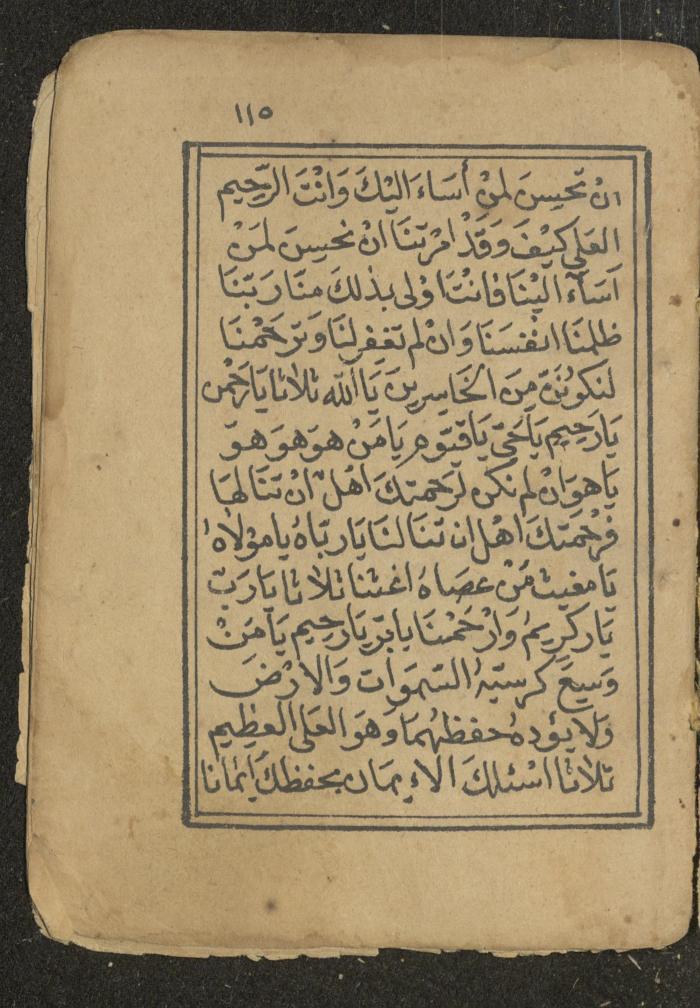 ١١٥
انْ تحسِنَ لمَنْ أسَاءَ اليْكَ وَانْتَ الرَّحِيم
العَلي كيْفَ وَقَدْ امرْتنَا انْ نحسِنَ لمَنْ
اَسَآءَ اليْنَا فانْتَ اوْلى بذلكَ منَّا رَبّنَا
ظلمْنَا انفْسَنَا وَانْ لم تغفِر لنَا وَترْحَمْنَا
لنَكونَنَّ مِنَ الخَاسِرينَ يَا اَلله ثلاثا يَارَحْمن
يَارَحِيم يَاحَيّ يَاقيّوم يَا مَنْ هوَ هوَ هوَ
يَا هوَ انْ لم نكن لرَحمتكَ اهْل انْ تنَالهَا
فرَحْمَتكَ اهْل ان تنَالنَا يَارَبّاهُ يامَوْلاهُ
يَا مغيث مَنْ عصَاهُ اغثنا ثلاثا يَارَبّ
يَاركَرِيمُ وَارْحَمْنَا يابرّ يَارَحِيم يَا مَنْ
وَسِعَ كرسيّهُ السّموَات وَالارْضَ
وَلا يؤدهُ حفظهُمَا وَهوَ العَلى العَظِيم
ثلاثا اسْئلكَ الاءِيمَان بحفظكَ اِيمَانا